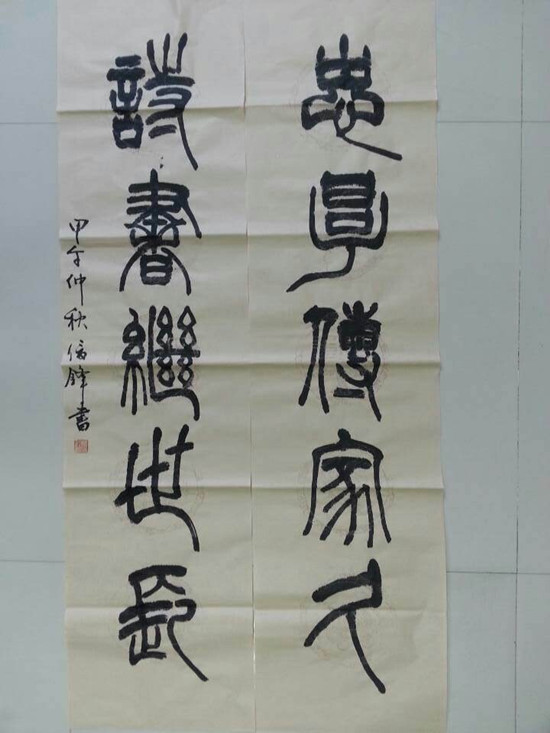 忠厚傳家久
詩書繼世長
甲午仲秋信鋒書